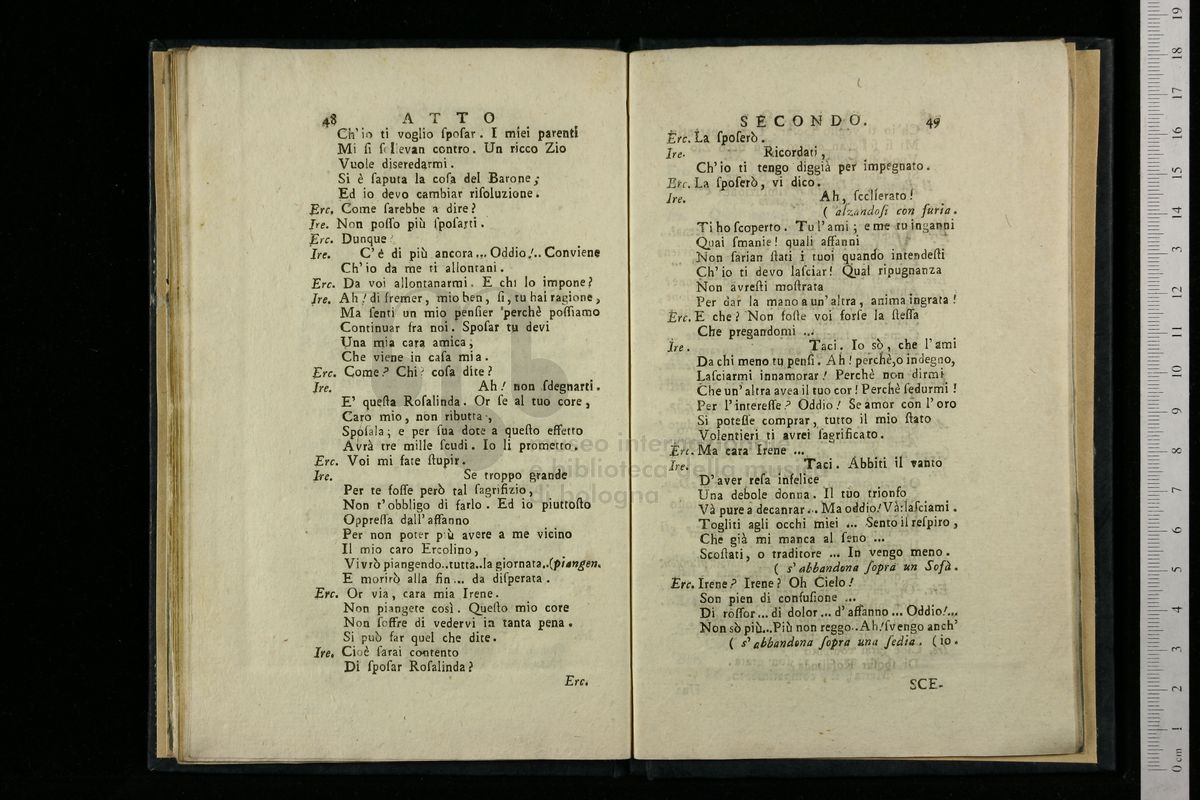 48 ATTO
Ch'io ti voglio ſpoſar. I miei parenti
Mi ſi ſollevan contro. Un ricco Zio
Vuole diseredarmi.
Si è ſaputa la coſa del Barone;
Ed io devo cambiar riſoluzione.
Erc. Come ſarebbe a dire?
Ire. Non poſſo più ſpoſarti.
Erc. Dunque
Ire. C'è di più ancora... Oddio!.. Conviene
Ch'io da me ti allontani.
Erc. Da voi allontanarmi. E chi lo impone?
Ire. Ah! di fremer, mio ben, ſi, tu hai ragione,
Ma ſenti un mio penſier 'perchè poſſiamo
Continuar fra noi. Spoſar tu devi
Una mia cara amica;
Che viene in caſa mia.
Erc. Come? Chi? coſa dite?
Ire. Ah! non ſdegnarti.
E' queſta Roſalinda. Or ſe al tuo core,
Caro mio, non ributta,
Spoſala; e per ſua dote a queſto effetto
Avrà tre mille ſcudi. Io li prometto.
Erc. Voi mi fate ſtupir.
Ire. Se troppo grande
Per te foſſe però tal ſagrifizio,
Non t'obbligo di farlo. Ed io piuttoſto
Oppreſſa dall'affanno
Per non poter più avere a me vicino
Il mio caro Ercolino,
Vivrò piangendo..tutta..la giornata..(piangen.
E morirò alla fin... da diſperata.
Erc. Or via, cara mia Irene.
Non piangete così. Queſto mio core
Non ſoffre di vedervi in tanta pena.
Si può far quel che dite.
Ire. Cioè ſarai contento
Di ſpoſar Roſalinda?
Erc.
SECONDO. 49
Erc. La ſpoſerò.
Ire. Ricordati,
Ch'io ti tengo diggià per impegnato.
Erc. La ſpoſerò, vi dico.
Ire. Ah, ſcellerato!
( alzandoſi con furia.
Ti ho ſcoperto. Tu l'ami; e me tu inganni
Quai ſmanie! quali affanni
Non ſarian ſtati i tuoi quando intendeſti
Ch'io ti devo laſciar! Qual ripugnanza
Non avreſti moſtrata
Per dar la mano a un'altra, anima ingrata!
Erc. E che? Non foſte voi forſe la ſteſſa
Che pregandomi ...
Ire. Taci. Io sò, che l'ami
Da chi meno tu penſi. Ah! perchè, o indegno,
Laſciarmi innamorar! Perchè non dirmi
Che un'altra avea il tuo cor! Perchè ſedurmi!
Per l'intereſſe? Oddio! Se amor con l'oro
Si poteſſe comprar, tutto il mio ſtato
Volentieri ti avrei ſagrificato.
Erc. Ma cara Irene ...
Ire. Taci. Abbiti il vanto
D'aver reſa infelice
Una debole donna. Il tuo trionfo
Và pure a decantar... Ma oddio! Và: laſciami.
Togliti agli occhi miei ... Sento il reſpiro,
Che già mi manca al ſeno ...
Scoſtati, o traditore ... In vengo meno.
( s'abbandona ſopra un Sofà.
Erc. Irene? Irene? Oh Cielo!
Son pien di confuſione ...
Di roſſor... di dolor... d'affanno... Oddio!...
Non sò più...Più non reggo..Ah! ſvengo anch'
( s'abbandona ſopra una ſedia. (io.
SCE-
museo internazionale
e biblioteca della musica
di bologna